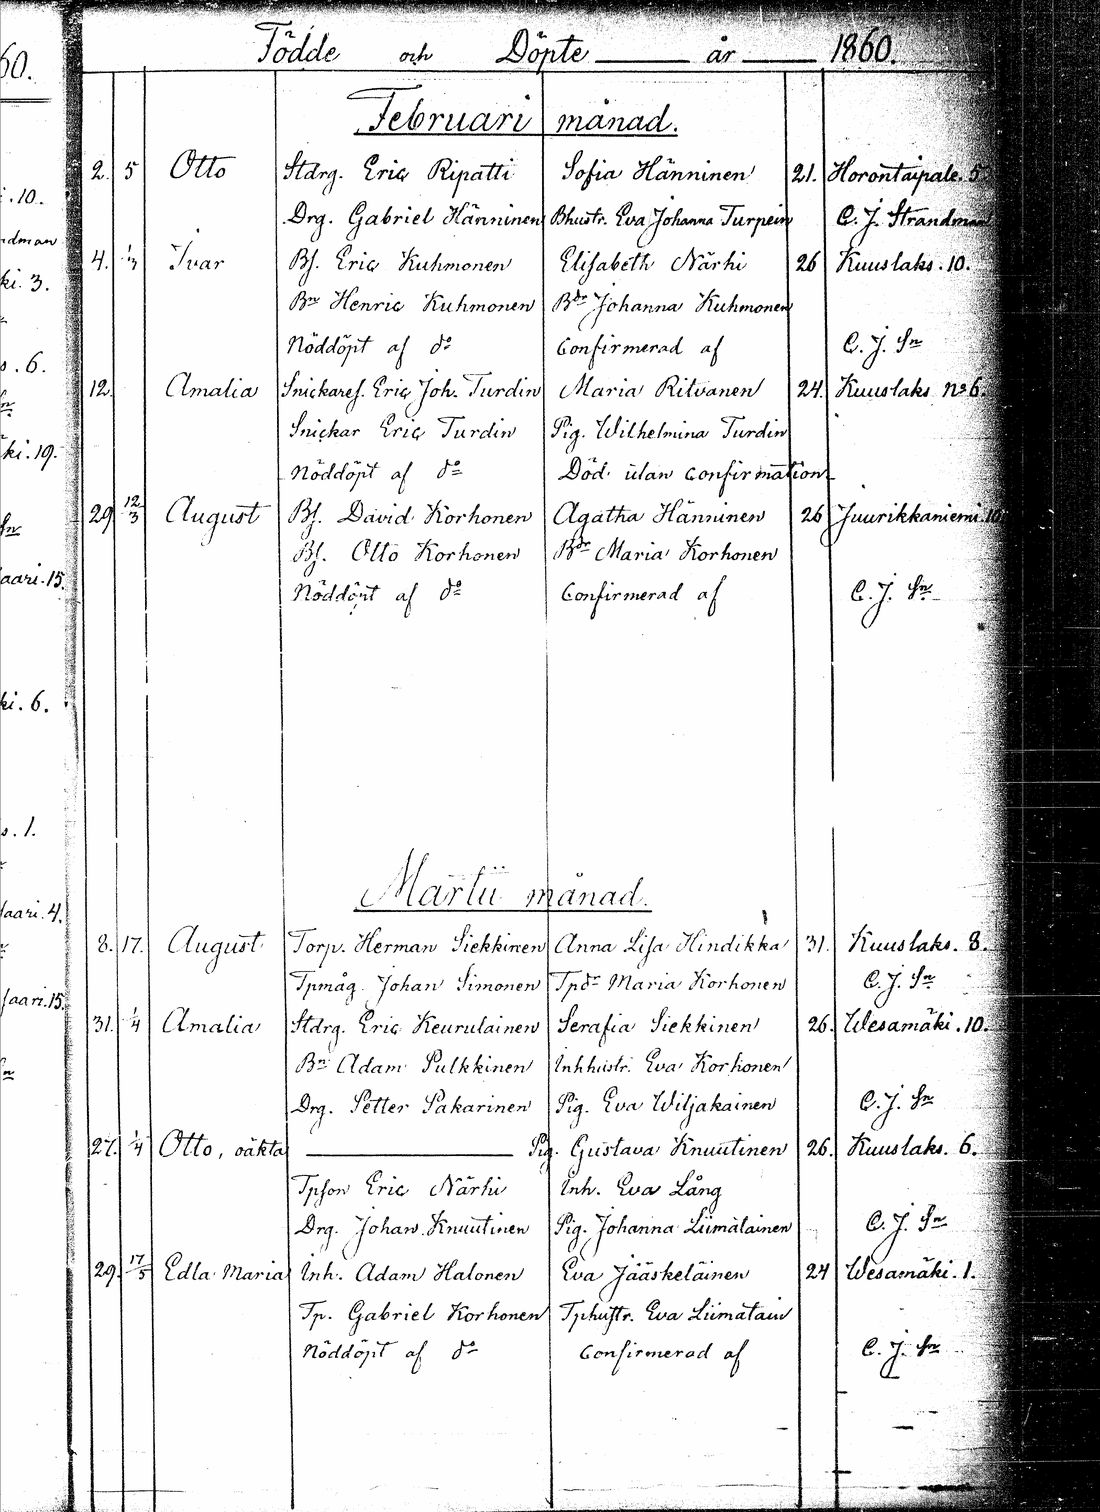 60. Födde och Döpte år 1860.
Februari månad.
2. 5 Otto Stdrg. Eric Ripatti Sofia Hänninen 21. Horontaipale. 5
i. 10.
Drg. Gabriel Hänninen Bhustr. Eva Johanna Turpein C. J. Strandman
ndman
4. 1/3 Ivar Bf. Eric Kuhmonen Elisabeth Närhi 26 Kuuslaks. 10.
ki. 3.
Bn Henric Kuhmonen Bdr Johanna Kuhmonen
Nöddöpt af do Confirmerad af C. J. Sn
s. 6.
12. Amalia Snickaref. Eric Joh. Turdin Maria Ritvanen 24. Kuuslaks No 6.
Snickar Eric Turdin Pig. Wilhelmina Turdin
ki. 19.
Nöddöpt af do Död utan confirmation
29 12/3 August Bf. David Korhonen Agatha Hänninen 26 Juurikkaniemi. 10
Bf. Otto Korhonen Bdr Maria Korhonen
aari. 15.
Nöddöpt af do Confirmerad af C. J. Sn
ki. 6.
s. 1.
Martii månad.
aari. 4.
8. 17. August Torp. Herman Siekkinen Anna Lisa Hindikka 31. Kuuslaks. 8.
Tpmåg. Johan Simonen Tpdr Maria Korhonen C. J. Sn
aari. 15.
31. 1/4 Amalia Stdrg. Eric Keurulainen Serafia Siekkinen 26. Wesamäki. 10.
Bn Adam Pulkkinen Inhhustr. Eva Korhonen
Drg. Petter Pakarinen Pig. Eva Wiljakainen C. J. Sn
27. 1/4 Otto, oäkta Pig. Gustava Knuutinen 26. Kuuslaks. 6.
Tpson Eric Närhi Inh. Eva Lång
Drg. Johan Knuutinen Pig. Johanna Liimatainen C. J. Sn
29. 17/5 Edla Maria Inh. Adam Halonen Eva Jääskeläinen 24 Wesamäki. 1.
Tp. Gabriel Korhonen Tphustr. Eva Liimatain
Nöddöpt af do Confirmerad af C. J. Sn